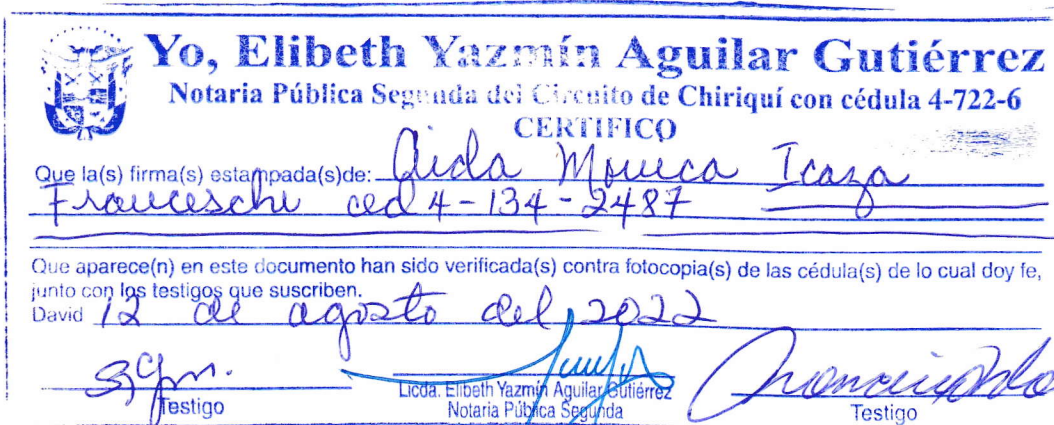 Yo, Elibeth Yazmín Aguilar Gutiérrez
Notaria Pública Segunda del Circuito de Chiriquí con cédula 4-722-6
CERTIFICO
Que la(s) firma(s) estampada(s)de: Aida Monica Icaza
Franceschi ced 4-134-2487
Que aparece(n) en este documento han sido verificada(s) contra fotocopia(s) de las cédula(s) de lo cual doy fe,
junto con los testigos que suscriben.
David 12 de agosto del 2022
Testigo
Licda. Elibeth Yazmín Aguilar Gutiérrez
Notaria Pública Segunda
Testigo